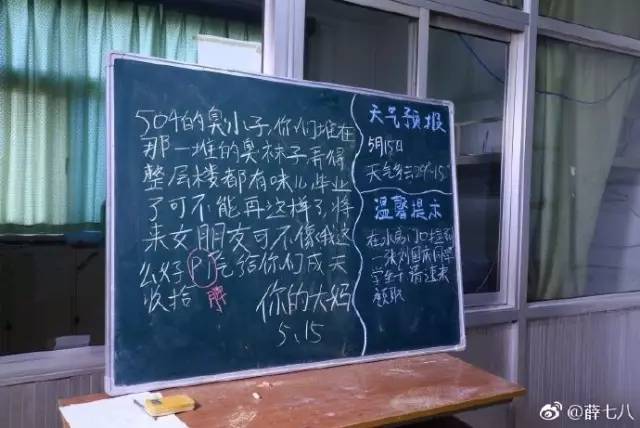 504的臭小子,你们堆在
那一堆的臭袜子弄得
整层楼都有味儿,毕业
了可不能再这样了,将
来女朋友可不像我这
么好PI气给你们成天
收拾 脾
你的大妈
5、15
天气预报
5月15日
天气多云29℃-15℃
温馨提示
在水房门口捡到
一张刘国庆同学
学生卡请速来
领取
@薛七八